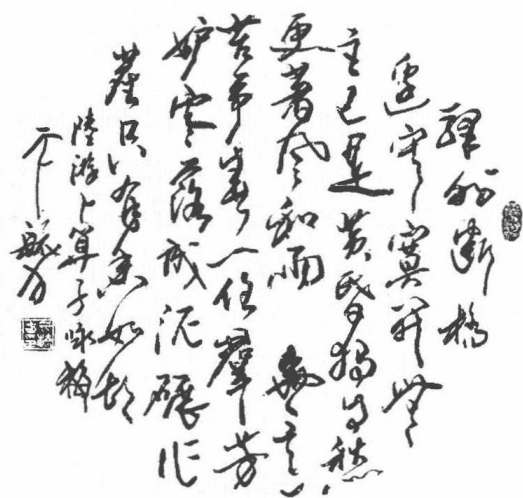 驛外斷橋
邊寂寞開無
主已是黄昏獨自愁
更著風和雨無意
苦争春一任羣芳
妒零落成泥碾作
塵只有香如故
陸游卜算子咏梅